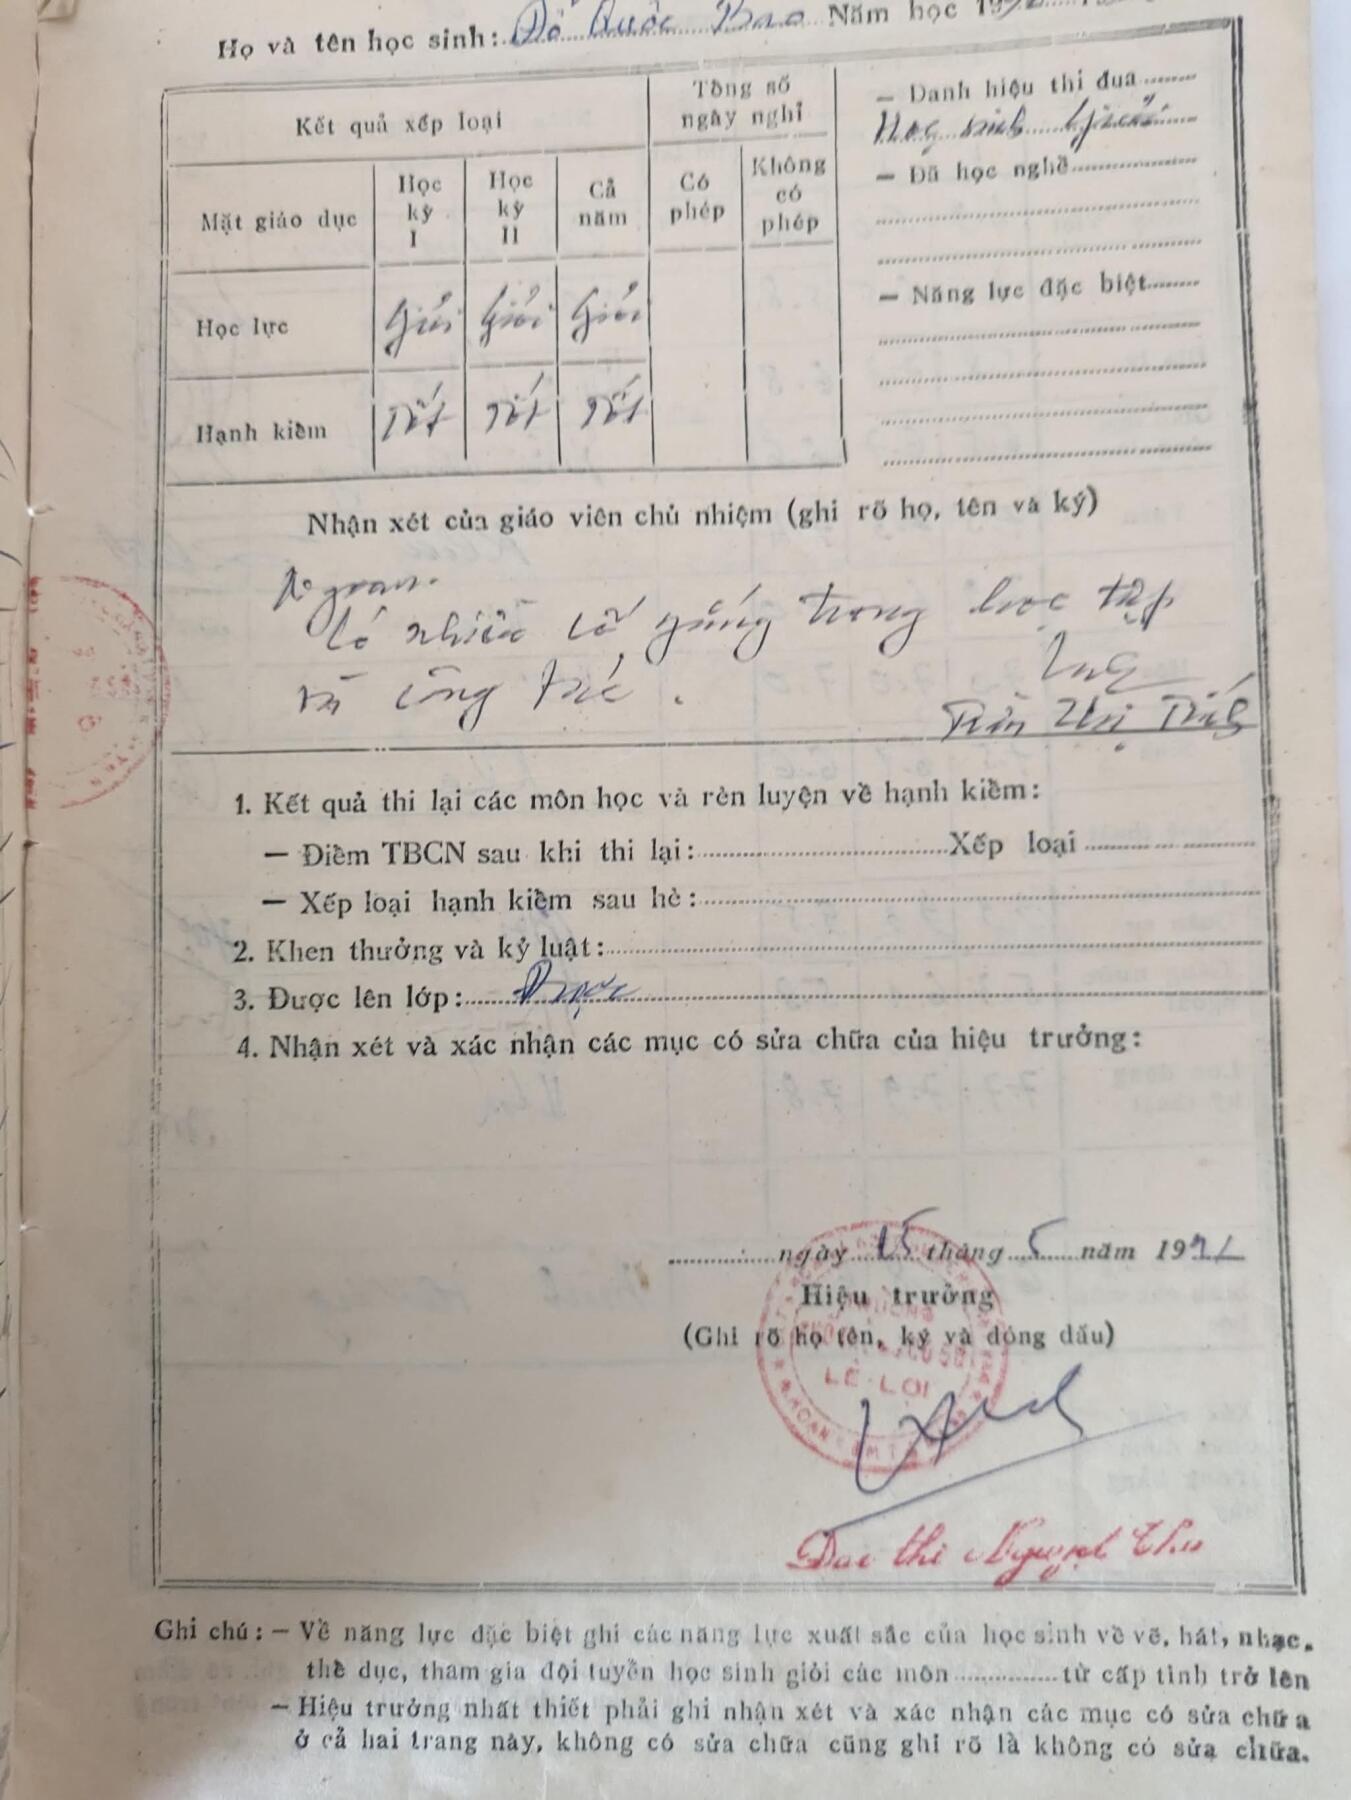 Họ và tên học sinh: Đỗ Quốc Bao Năm học 19
Kết quả xếp loại
Tổng số ngày nghỉ
Mặt giáo dục
Học kỳ I
Học kỳ II
Cả năm
Có phép
Không có phép
Học lực Giỏi Giỏi Giỏi
Hạnh kiểm Tốt Tốt Tốt
— Danh hiệu thi đua
Học sinh Giỏi
— Đã học nghề
— Năng lực đặc biệt
Nhận xét của giáo viên chủ nhiệm (ghi rõ họ, tên và ký)
Có nhiều cố gắng trong học tập
và công tác.
Trần Thị
1. Kết quả thi lại các môn học và rèn luyện về hạnh kiểm:
— Điểm TBCN sau khi thi lại: Xếp loại
— Xếp loại hạnh kiểm sau hè:
2. Khen thưởng và kỷ luật:
3. Được lên lớp: Được
4. Nhận xét và xác nhận các mục có sửa chữa của hiệu trưởng:
ngày 15 tháng 5 năm 1991
Hiệu trưởng
(Ghi rõ họ tên, ký và đóng dấu)
LÊ-LỢI
thị Nguyệt Thu
Ghi chú: — Về năng lực đặc biệt ghi các năng lực xuất sắc của học sinh về vẽ, hát, nhạc,
thể dục, tham gia đội tuyển học sinh giỏi các môn ............ từ cấp tỉnh trở lên
— Hiệu trưởng nhất thiết phải ghi nhận xét và xác nhận các mục có sửa chữa
ở cả hai trang này, không có sửa chữa cũng ghi rõ là không có sửa chữa.